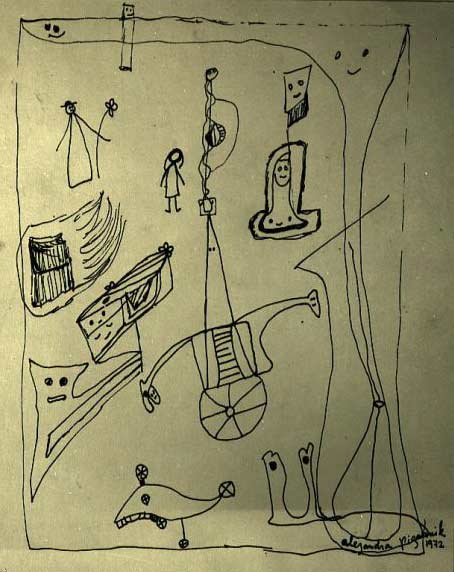 alejandra pizarnik
1972